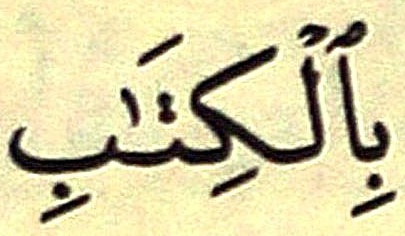 بِٱلْكِتَـٰبِ